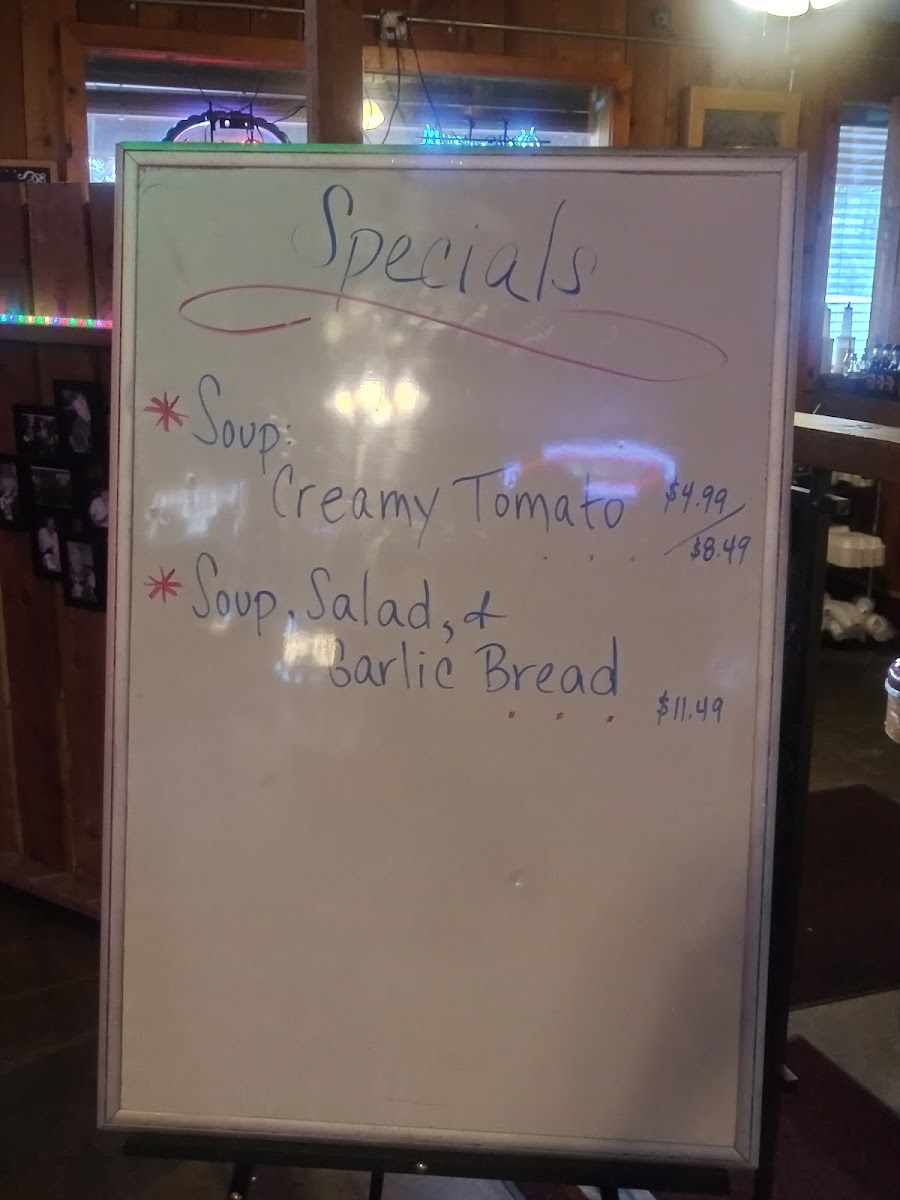 Specials
* Soup:
Creamy Tomato $4.99
... / $8.49
* Soup, Salad, &
Garlic Bread
... $11.49